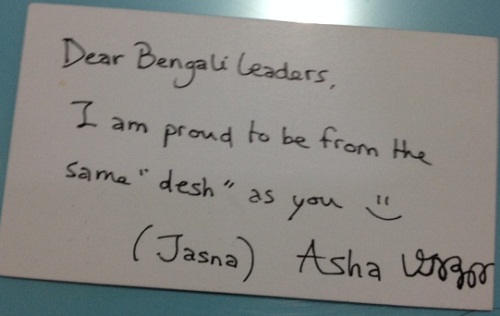 Dear Bengali leaders,
I am proud to be from the
same "desh" as you
(Jasna) Asha